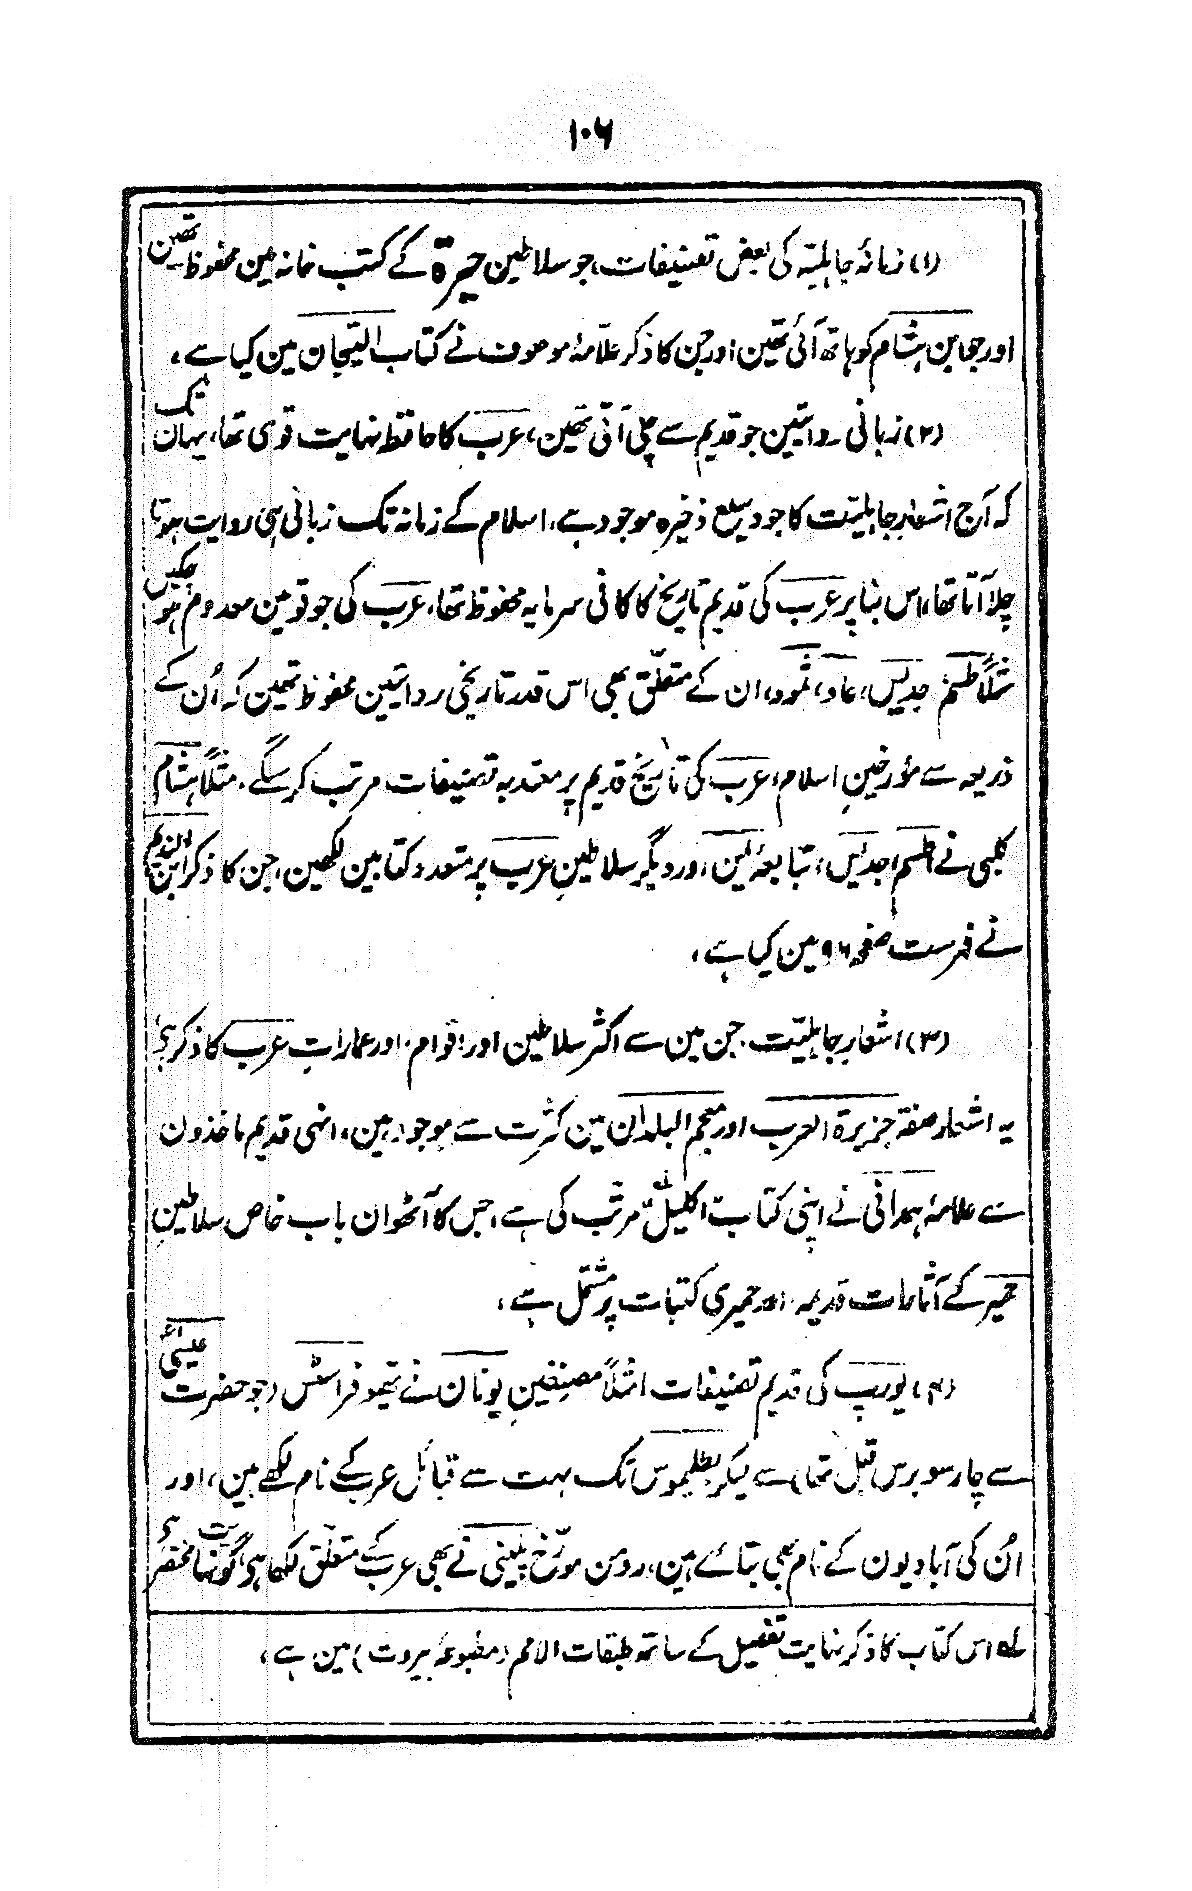 ۱۰۶
(۱) زمانۂ جاہلیتہ کی بعض تصنیفات، جو سلاطین حیرۃ کے کتب خانہ مین محفوظ تھین
اور جو ابن ہشام کو ہاتھ آئی تھین اور جن کا ذکر علامۂ موصوف نے کتاب التیجان مین کیا ہے،
(۲) زبانی روایتین جو قدیم سے چلی آتی تھین، عرب کا حافظہ نہایت قوی تھا، یہان تک
کہ آج اشعار جاہلیت کا جو وسیع ذخیرہ موجود ہے، اسلام کے زمانہ تک زبانی ہی روایت ہوتا
چلا آتا تھا، اس بنا پر عرب کی قدیم تاریخ کا کافی سرمایہ محفوظ تھا، عرب کی جو قومین معدوم ہو چکین
مثلاً طسم، جدیس، عاد، ثمود، ان کے متعلق بھی اس قدر تاریخی روایتین محفوظ تھین کہ اُن کے
ذریعہ سے مؤرخینِ اسلام، عرب کی تاریخ قدیم پر معتدبہ تصنیفات مرتب کر سکے، مثلاً ہشام
کلبی نے طسم، جدیس، تبابعۂ یمن، اور دیگر سلاطینِ عرب پر متعدد کتابین لکھین، جن کا ذکر ابن الندیم
نے فہرست صفحہ ۹۶ مین کیا ہے،
(۳) اشعارِ جاہلیت، جن مین سے اکثر سلاطین اور اقوام، اور عماراتِ عرب کا ذکر ہی
یہ اشعار صفۃ جزیرۃ العرب اور معجم البلدان مین کثرت سے موجود ہین، انہی قدیم ماخذون
سے علامۂ ہمدانی نے اپنی کتاب اکلیل مرتب کی ہے، جس کا آٹھوان باب خاص سلاطینِ
حمیر کے آثارات قدیمہ، اور حمیری کتبات پر مشتمل ہے،
(۴) یورپ کی قدیم تصنیفات، مثلاً مصنفینِ یونان نے تھیوفراسٹس (جو حضرت عیسیٰؑ
سے چار سو برس قبل تھا) سے لیکر بطلیموس تک بہت سے قبائل عرب کے نام لکھے ہین، اور
اُن کی آبادیون کے نام بھی بتائے ہین، رومن مورّخ پلینی نے بھی عرب کے متعلق لکھا ہی گو بہت مختصر ہی
لہ اس کتاب کا ذکر نہایت تفصیل کے ساتھ طبقات الامم (مطبوعہ بیروت) مین ہے،